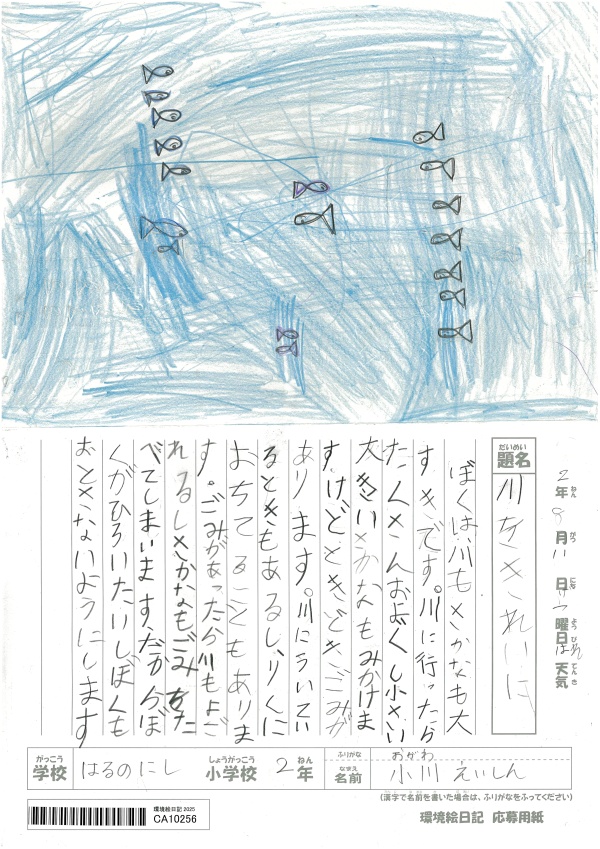 2年8月11日 曜日 はれ 天気
ねん がつ にち ようび てんき
だいめい
題名
川をきれいに
ぼくは、川もさかなも大
すきです。川に行ったら
たくさんおよぐし小さい
大きいさかなもみかけま
すけどときどきごみが
あります。川にういてい
るときもあるし、りくに
おちてることもありま
す。ごみがあったら川もよご
れるしさかなもごみをた
べてしまいます。だからぼ
くがひろいたいしぼくも
おとさないようにします
がっこう しょうがっこう ねん ふりがな おがわ
学校 はるのにし 小学校 2年 なまえ 名前 小川 えいしん
(漢字で名前を書いた場合は、ふりがなをふってください)
環境絵日記 2025
CA10256
環境絵日記 応募用紙